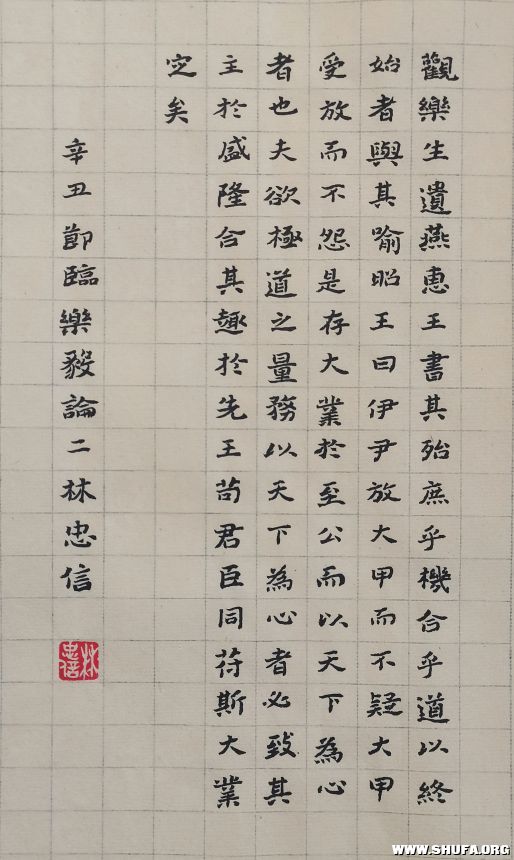 觀樂生遺燕惠王書其殆庶乎機合乎道以終
始者與其喻昭王曰伊尹放大甲而不疑大甲
受放而不怨是存大業於至公而以天下為心
者也夫欲極道之量務以天下為心者必致其
主於盛隆合其趣於先王苟君臣同苻斯大業
定矣
辛丑節臨樂毅論二林忠信
林忠信
WWW.SHUFA.ORG